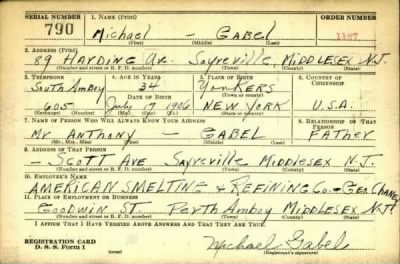 SERIAL NUMBER 1. NAME (Print) ORDER NUMBER
790 Michael – Gabel 1167
(First) (Middle) (Last)
2. ADDRESS (Print)
89 HARDING AV. Sayreville, MIDDLESEX N.J.
(Number and street or R. F. D. number) (Town) (County) (State)
3. TELEPHONE 4. AGE IN YEARS 5. PLACE OF BIRTH 6. COUNTRY OF CITIZENSHIP
South Amboy 34 Yonkers
DATE OF BIRTH (Town or county)
605 July 17 1906 NEW YORK U.S.A.
(Exchange) (Number) (Mo.) (Day) (Yr.) (State or country)
7. NAME OF PERSON WHO WILL ALWAYS KNOW YOUR ADDRESS 8. RELATIONSHIP OF THAT PERSON
Mr ANTHONY – GABEL FATHER
(Mr., Mrs., Miss) (First) (Middle) (Last)
9. ADDRESS OF THAT PERSON
– SCOTT AVE Sayreville MIDDLESEX N.J.
(Number and street or R. F. D. number) (Town) (County) (State)
10. EMPLOYER'S NAME
AMERICAN SMELTING & REFINING Co –
11. PLACE OF EMPLOYMENT OR BUSINESS
GOODWIN ST. Perth Amboy MIDDLESEX N.J.
(Number and street or R. F. D. number) (Town) (County) (State)
I AFFIRM THAT I HAVE VERIFIED ABOVE ANSWERS AND THAT THEY ARE TRUE.
REGISTRATION CARD
D. S. S. Form 1
Michael Gabel
(Registrant's signature)